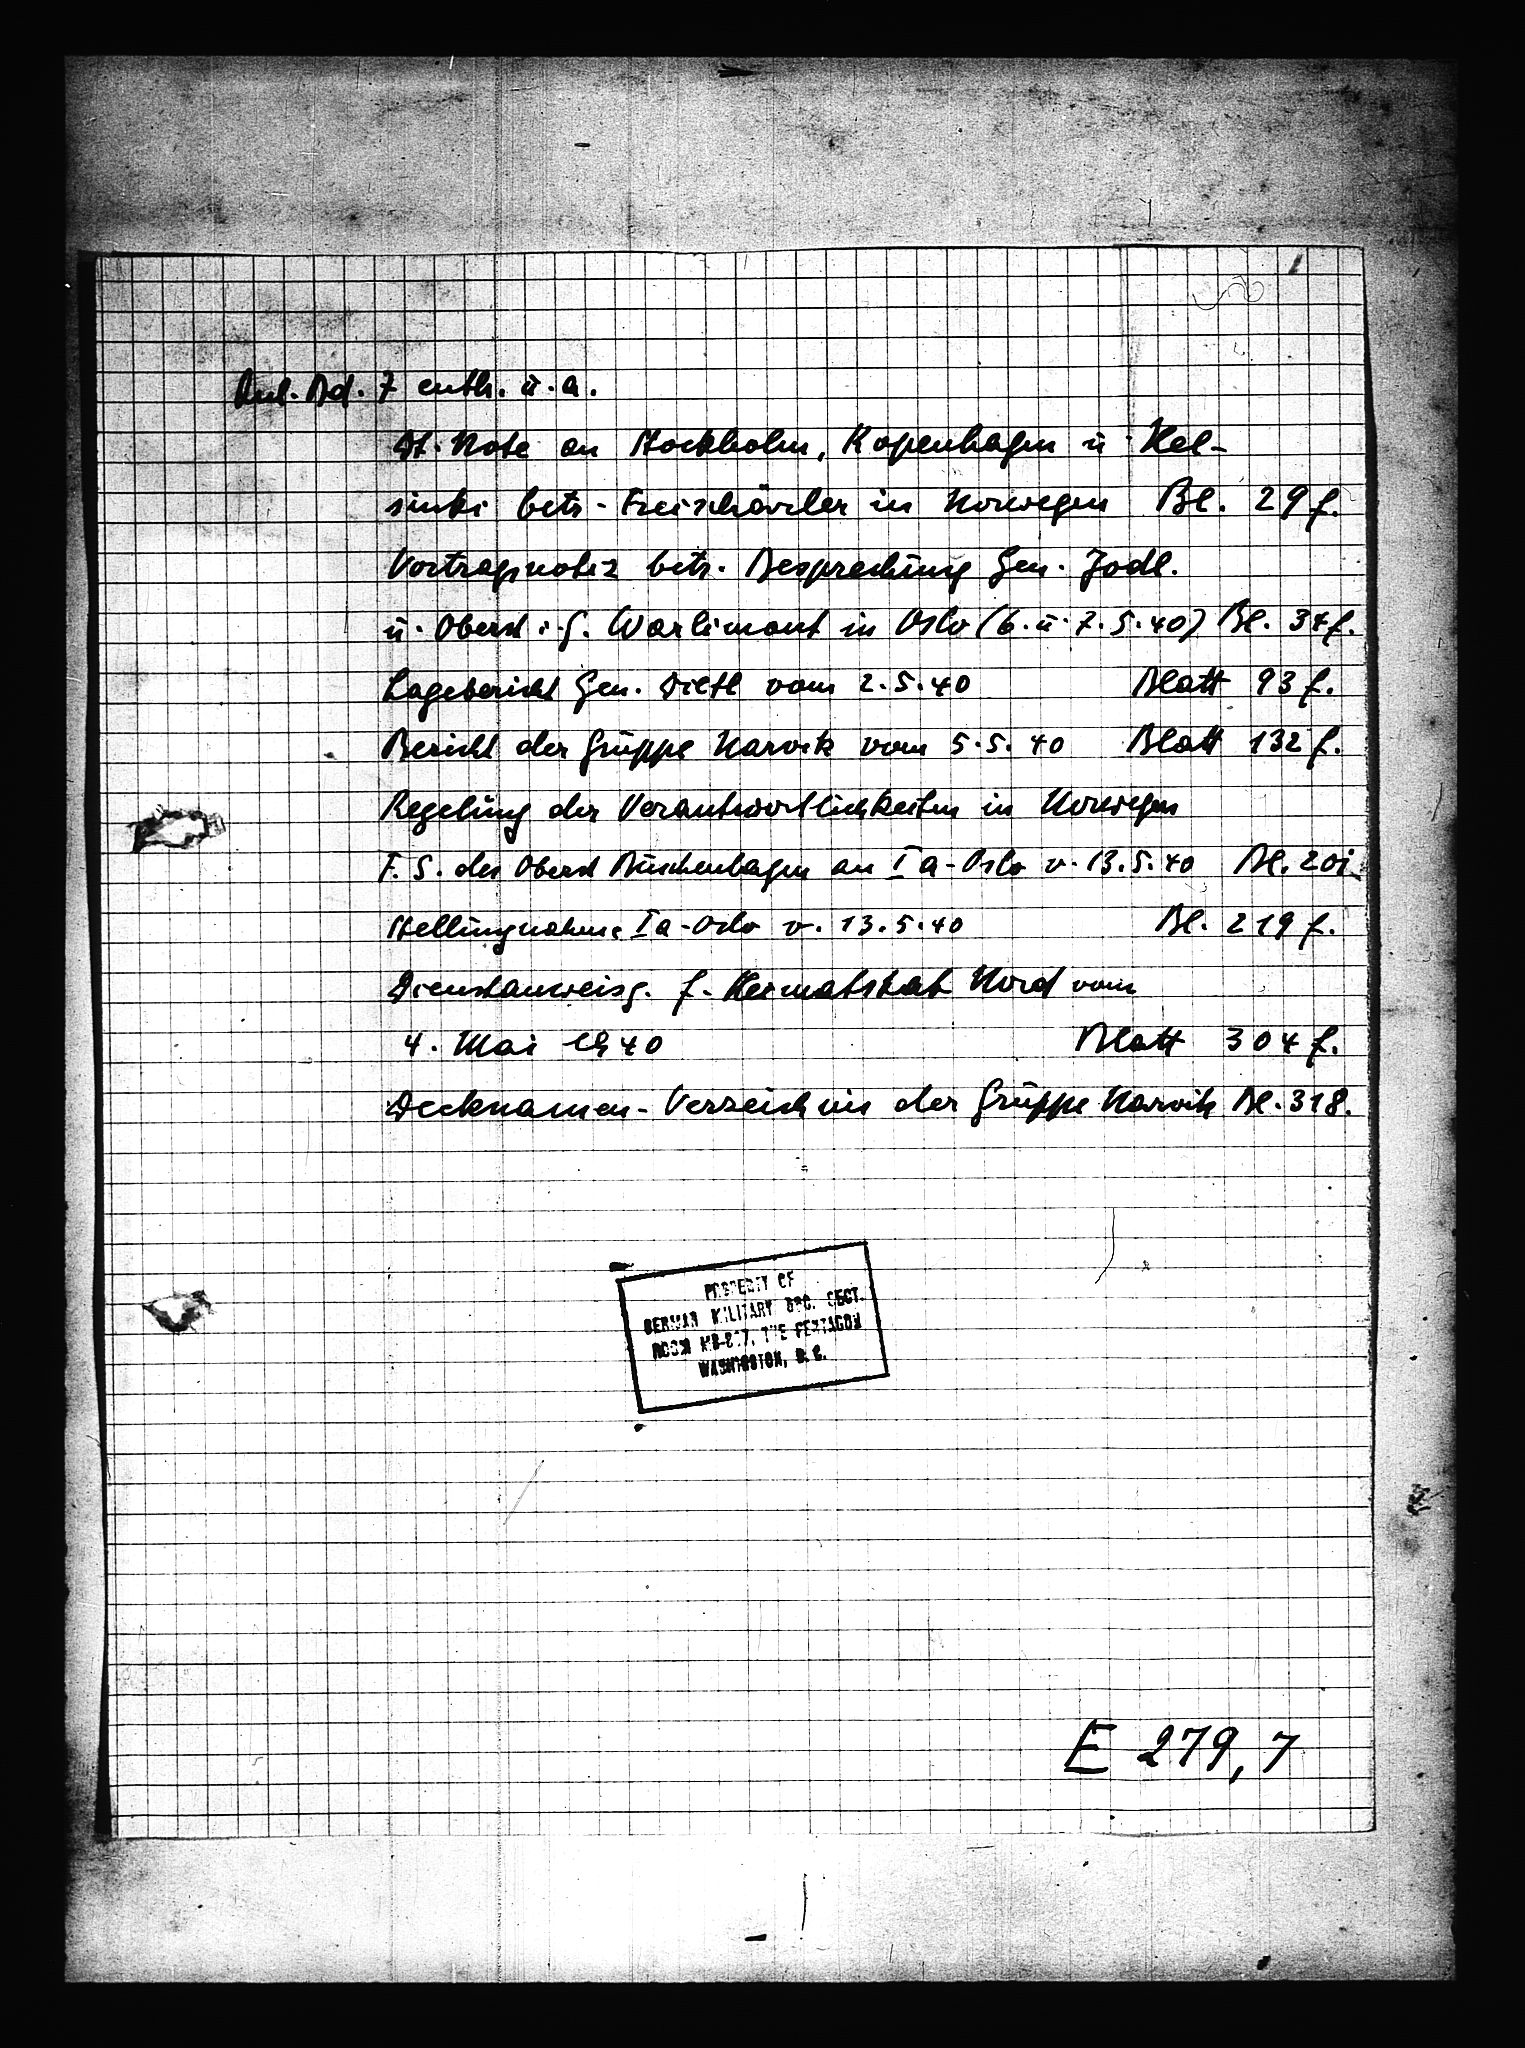 1
Anl. Bd. 7 enth. u. a.
Dt. Note an Stockholm, Kopenhagen u. Hel-
sinki betr. Freischärler in Norwegen Bl. 29 f.
Vortragsnotiz betr. Besprechung Gen. Jodl.
u. Oberst i. G. Warlimont in Oslo (6. u. 7. 5. 40) Bl. 37 f.
Lagebericht Gen. Dietl vom 2. 5. 40 Blatt 93 f.
Bericht der Gruppe Narvik vom 5. 5. 40 Blatt 132 f.
Regelung der Verantwortlichkeiten in Norwegen
F. S. des Oberst Buschenhagen an Ia-Oslo v. 13. 5. 40 Bl. 201
Stellungnahme Ia-Oslo v. 13. 5. 40 Bl. 219 f.
Dienstanweisg. f. Heimatstab Nord vom
4. Mai 1940 Blatt 304 f.
Decknamen-Verzeichnis der Gruppe Narvik Bl. 318.
PROPERTY OF
GERMAN MILITARY DOC. SECT.
ROOM THE PENTAGON
WASHINGTON, D. C.
E 279, 7